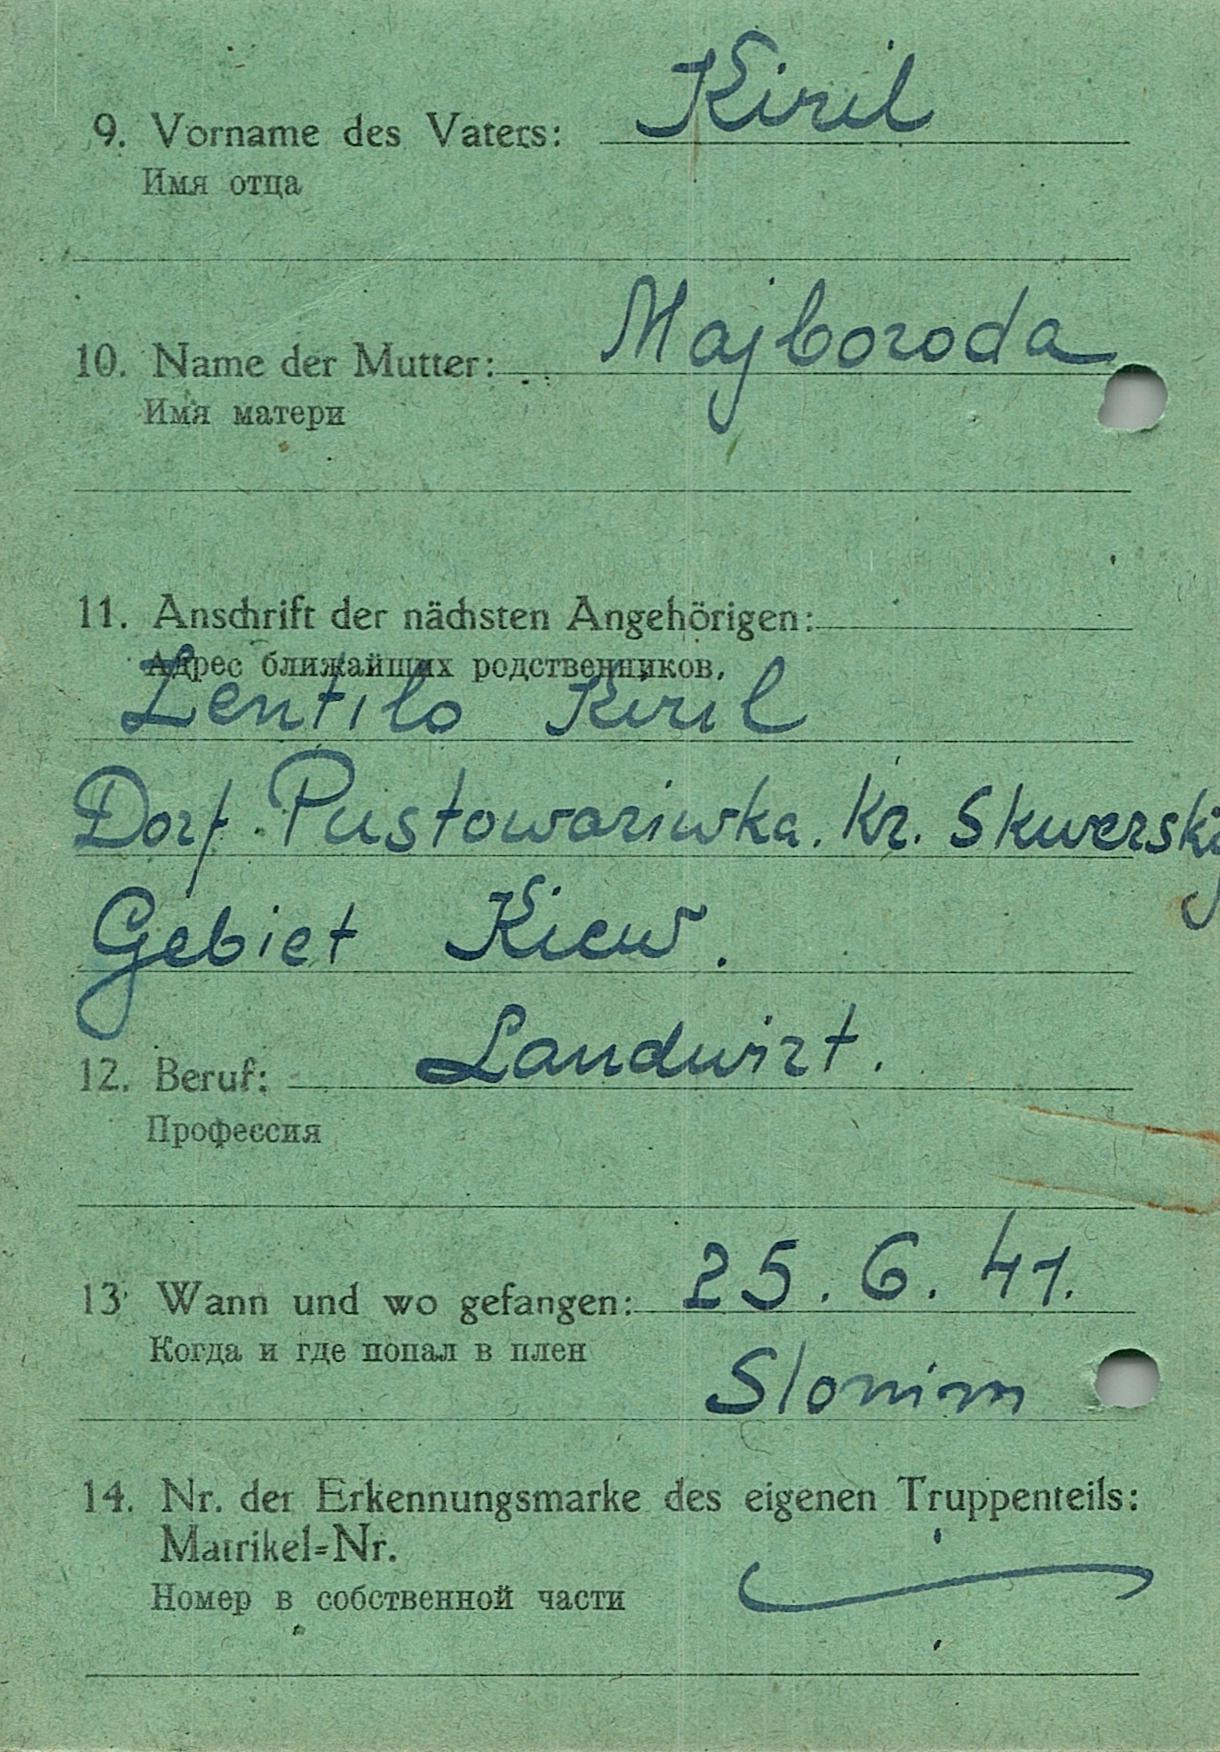 9. Vorname des Vaters: Kiril
Имя отца
10. Name der Mutter: Majboroda
Имя матери
11. Anschrift der nächsten Angehörigen:
Адрес ближайших родственников.
Lentilo Kiril
Dorf. Pustowariwka. Kr. Skwersky
Gebiet Kiew.
12. Beruf: Landwirt.
Профессия
13 Wann und wo gefangen: 25. 6. 41.
Когда и где попал в плен
Slonim
14. Nr. der Erkennungsmarke des eigenen Truppenteils:
Matrikel=Nr.
Номер в собственной части